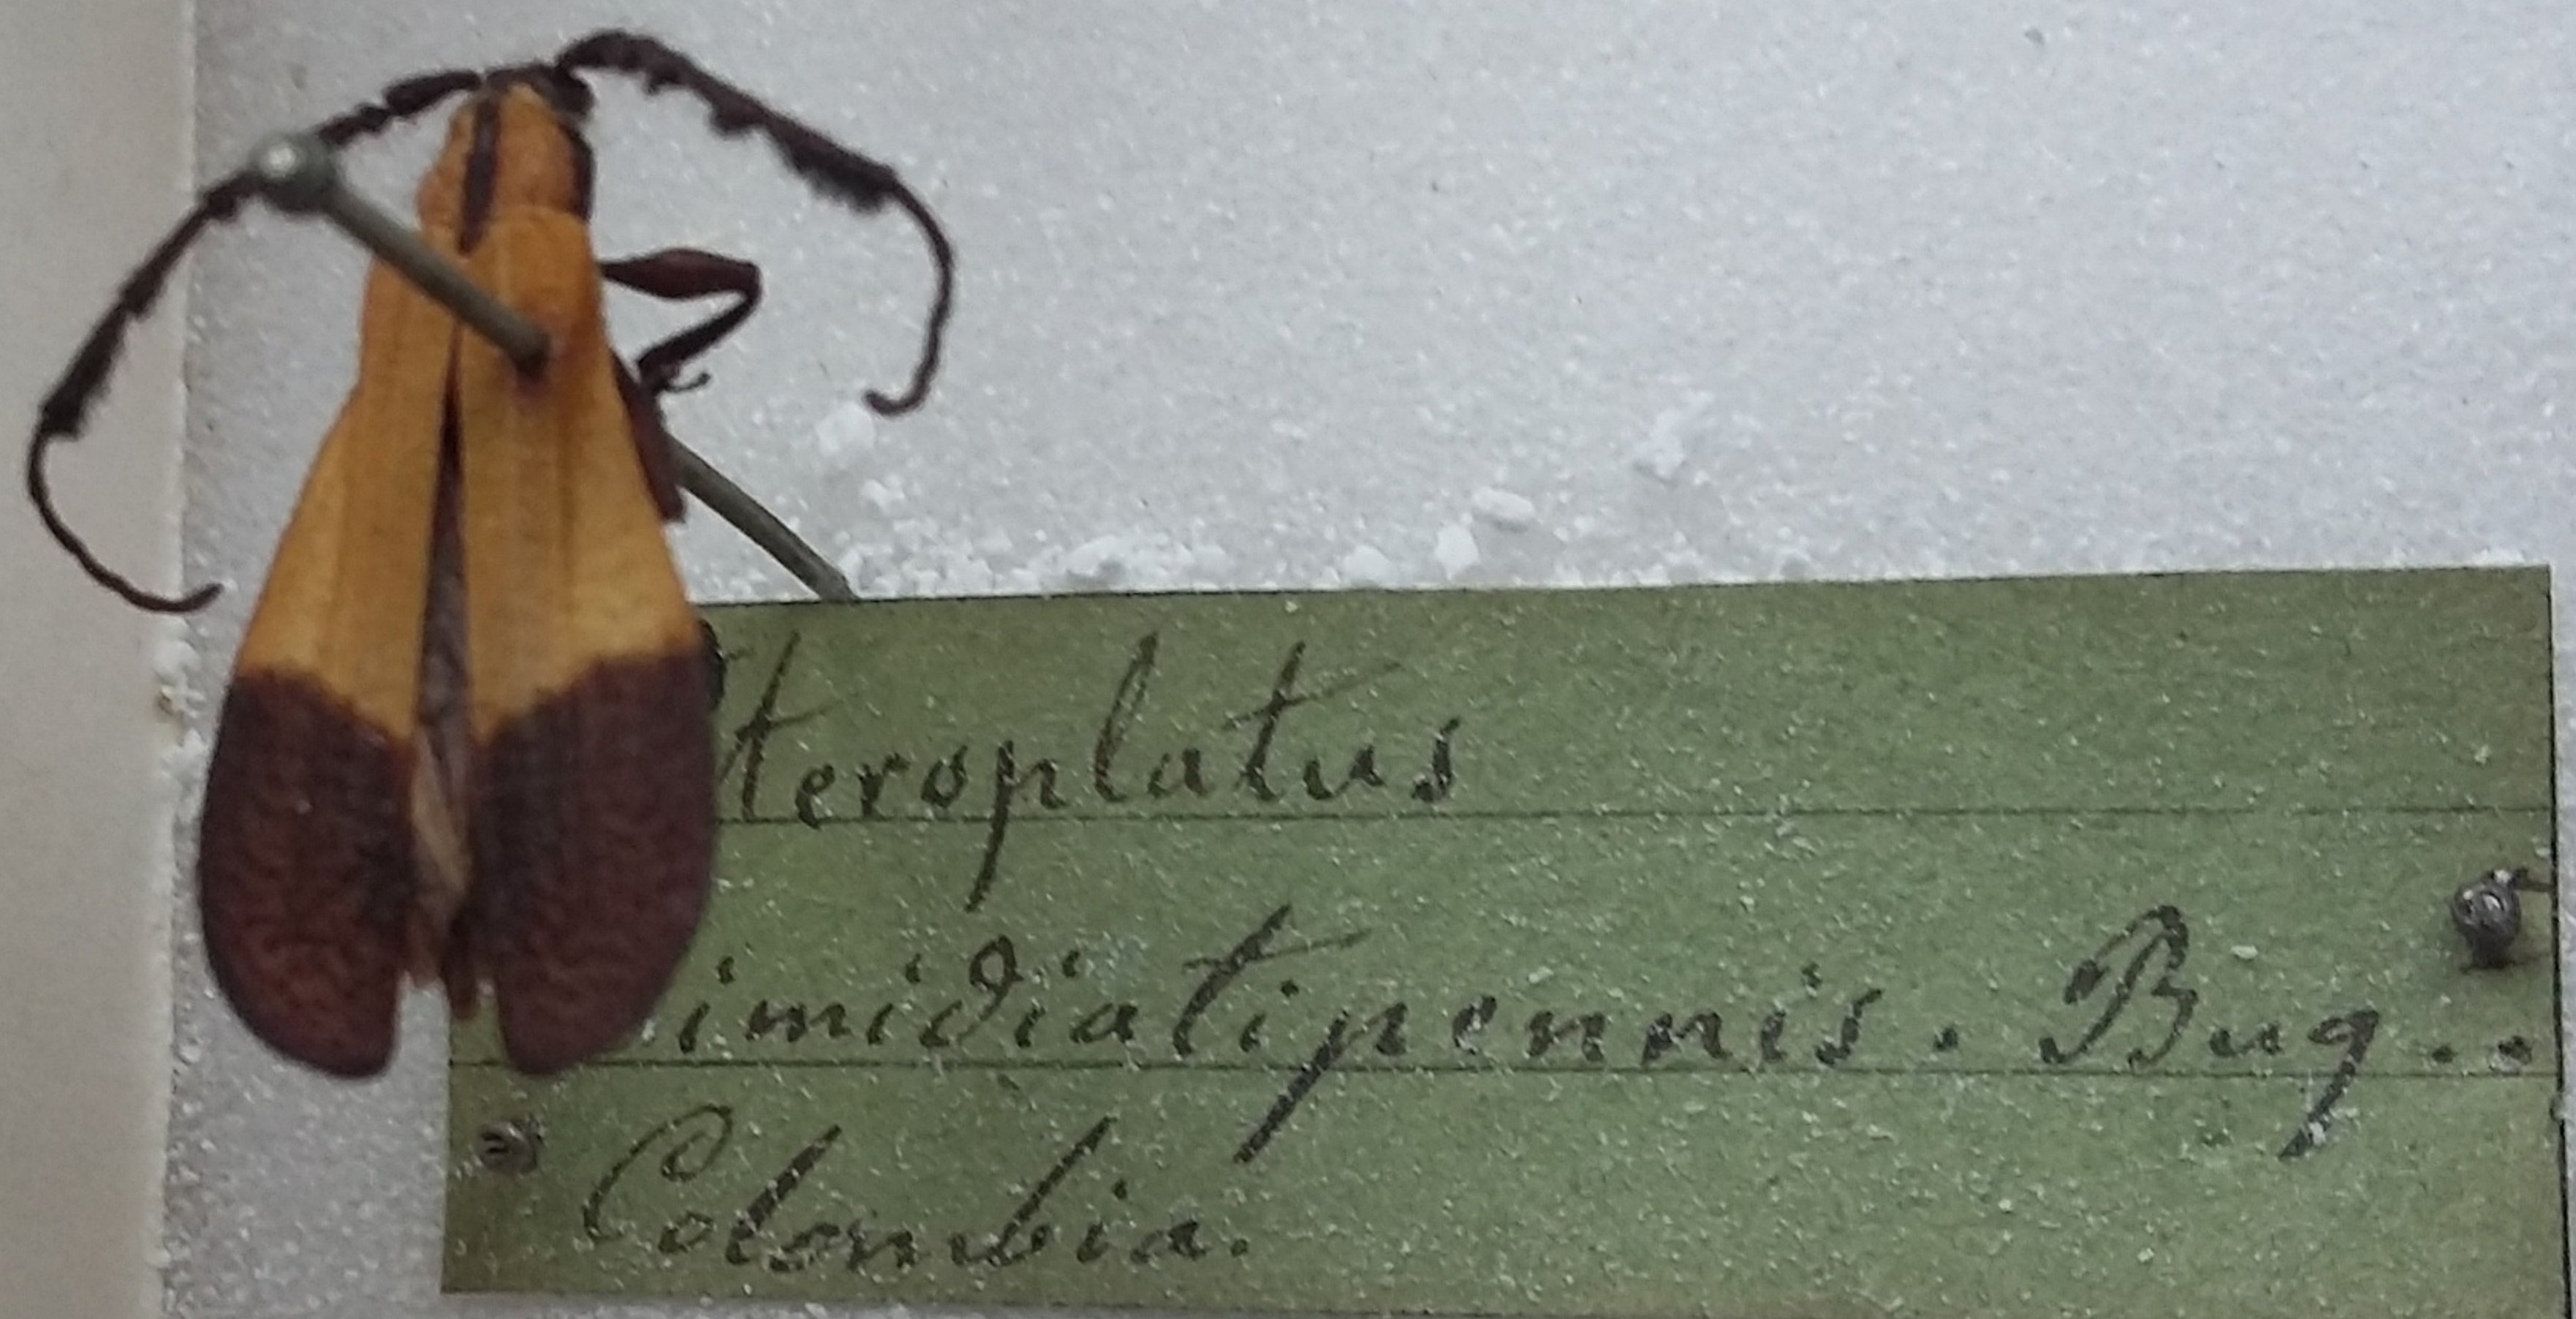 teroplatus
imidiatipennis. Buq..
Colombia.